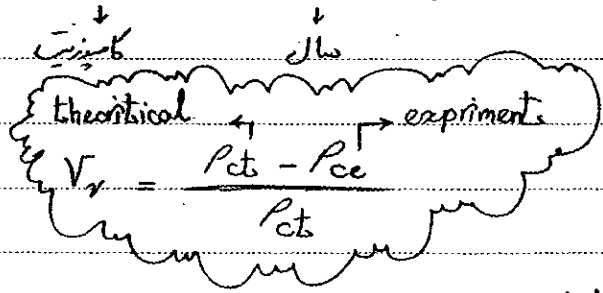 کامپوزیت سال
theoritical ← → expriment
V_v = (ρct - ρce) / ρct